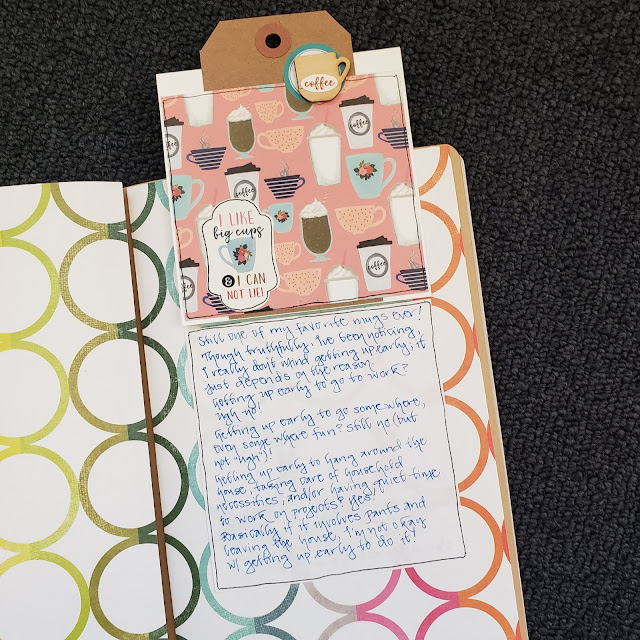 coffee
coffee
coffee
coffee
coffee
I LIKE
big cups
& I CAN
NOT LIE!
Still one of my favorite mugs ever!
Though truthfully, I've been noticing,
I really don't mind getting up early; it
just depends on the reason
Getting up early to go to work?
ugh no!
Getting up early to go somewhere,
even somewhere fun? Still no (but
not "ugh")!
Getting up early to hang around the
house, taking care of household
necessities, and/or having quiet time
to work on projects? yes!
Basically, if it involves pants and
leaving the house, I'm not okay
w/ getting up early to do it!